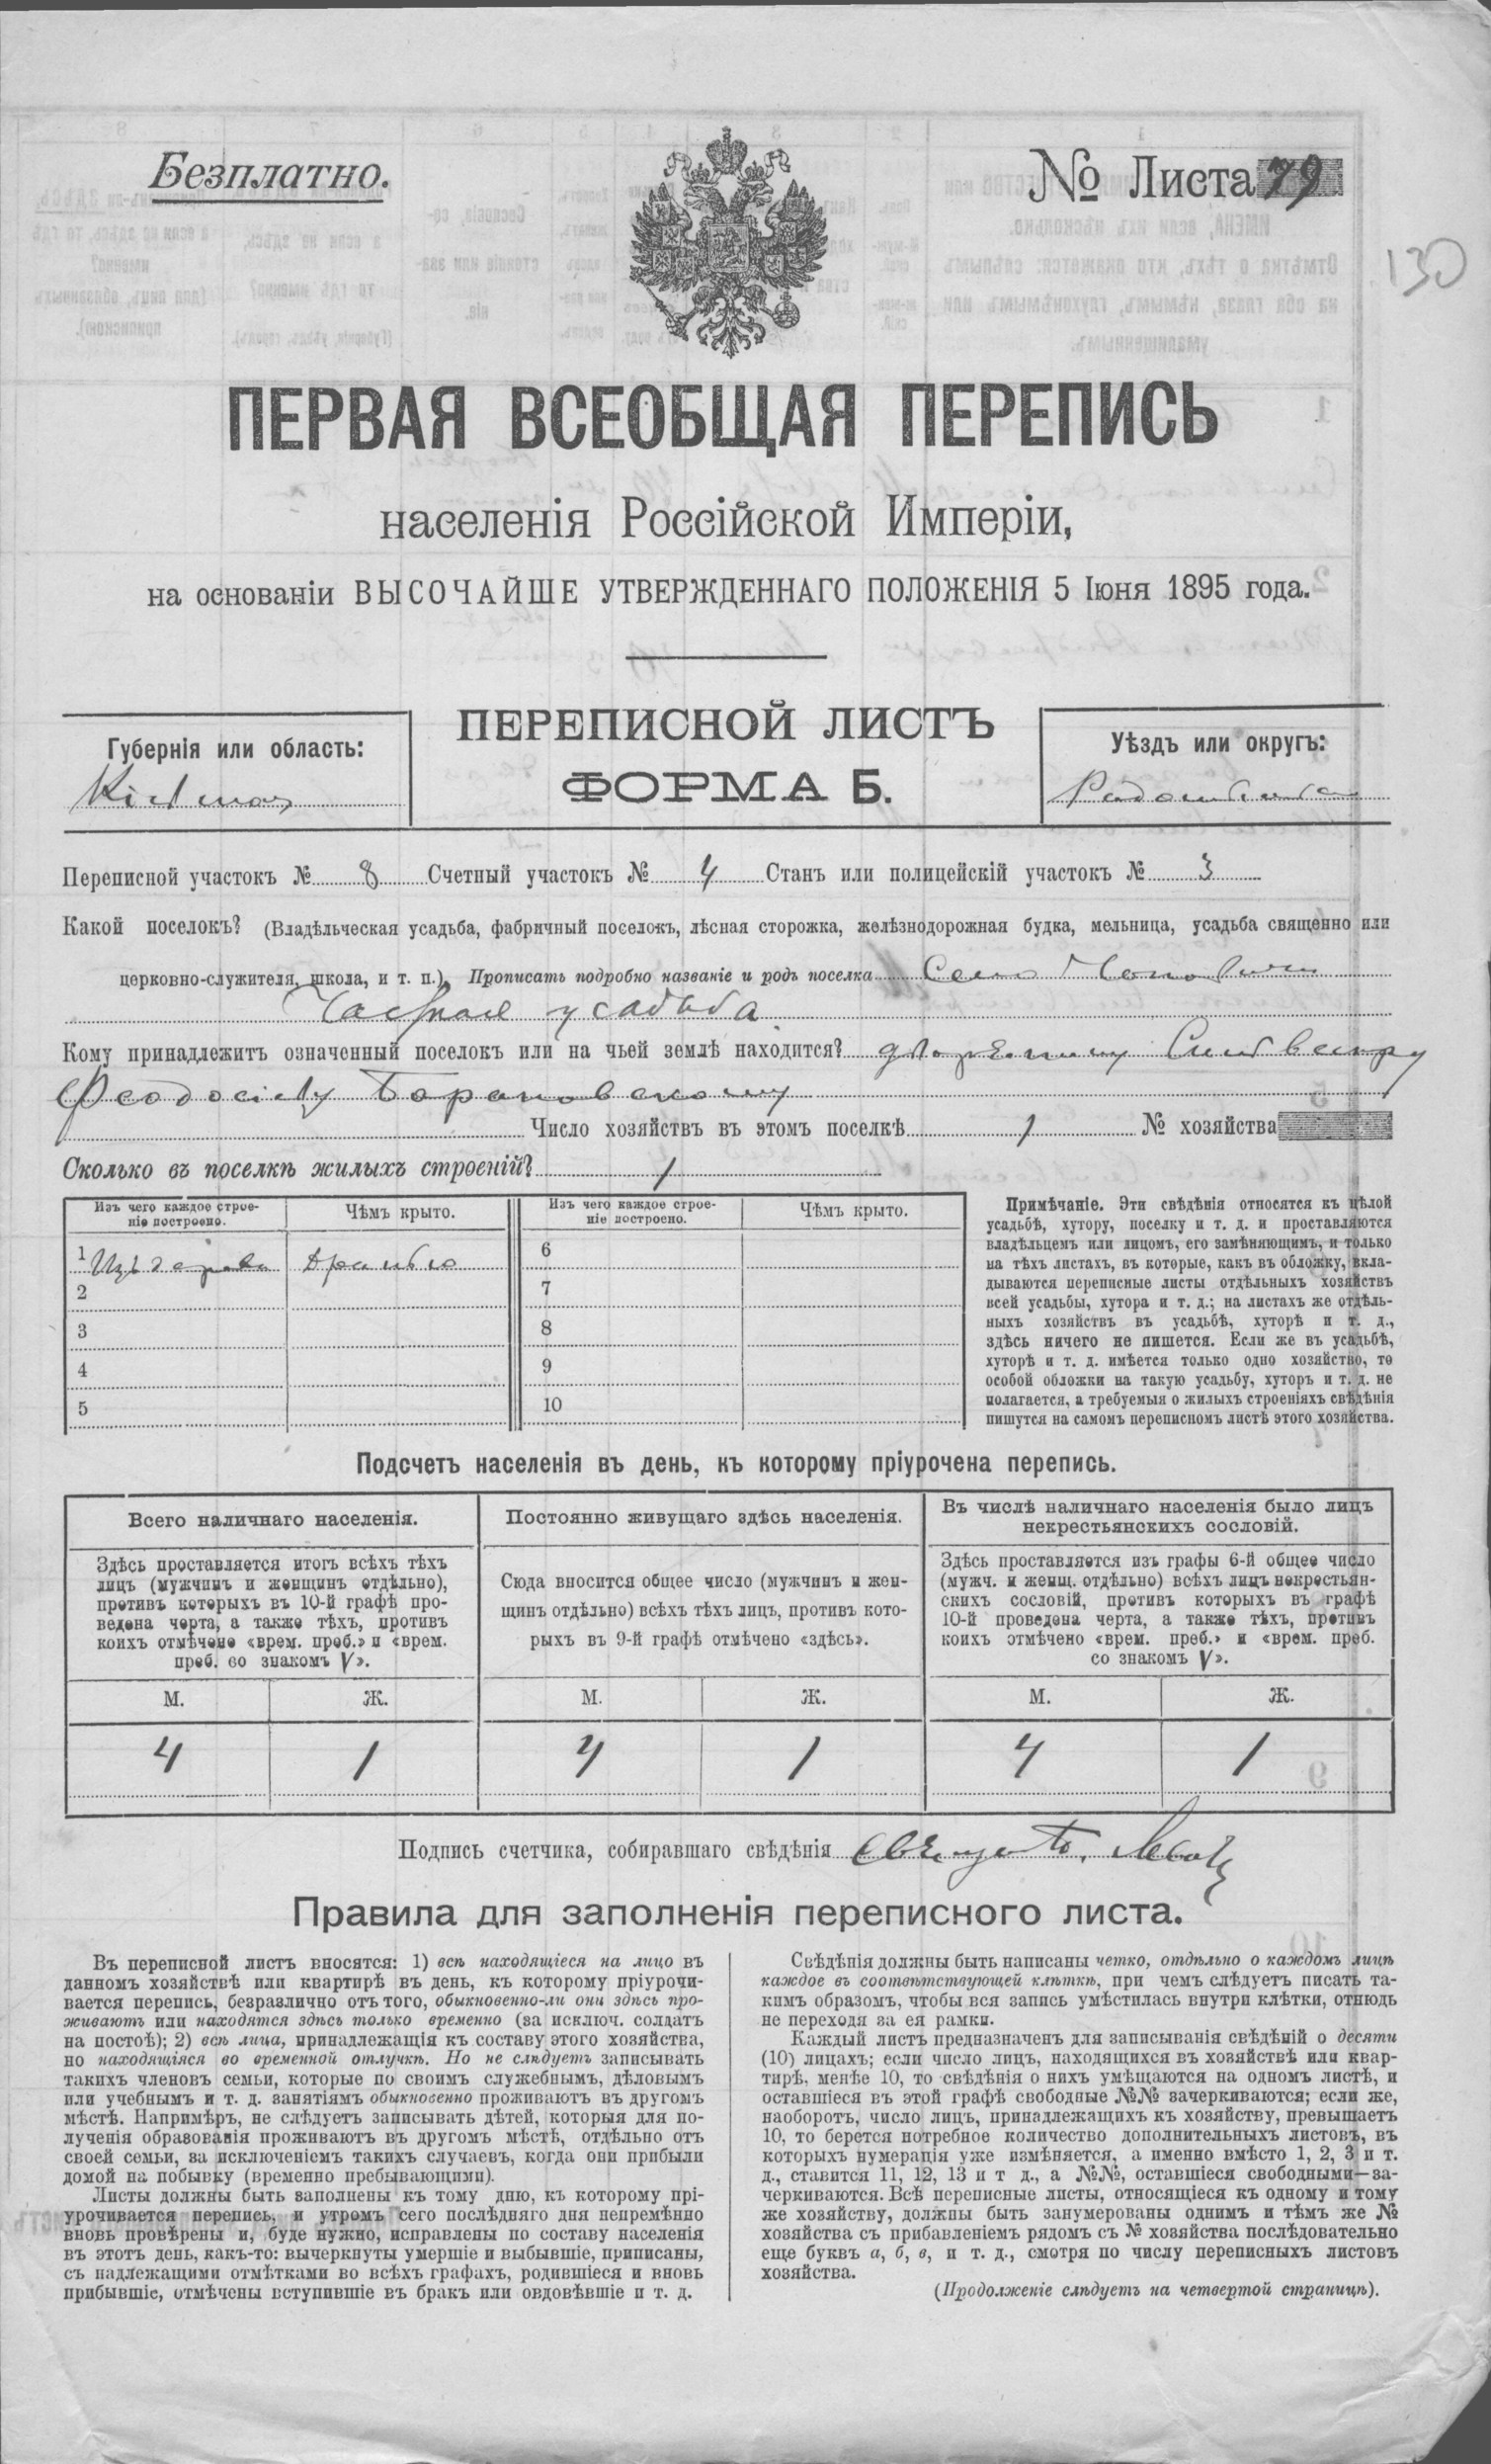 Безплатно.
№ Листа 79
130
ПЕРВАЯ ВСЕОБЩАЯ ПЕРЕПИСЬ
населенія Россійской Имперіи,
на основаніи ВЫСОЧАЙШЕ УТВЕРЖДЕННАГО ПОЛОЖЕНІЯ 5 Іюня 1895 года.
ПЕРЕПИСНОЙ ЛИСТЪ
ФОРМА Б.
Губернія или область:
Уѣздъ или округъ:
Переписной участокъ № 8 Счетный участокъ № 4 Станъ или полицейскій участокъ № 3
Какой поселокъ? (Владѣльческая усадьба, фабричный поселокъ, лѣсная сторожка, желѣзнодорожная будка, мельница, усадьба священно или
церковно-служителя, школа, и т. п.). Прописать подробно названіе и родъ поселка Село
Частная усадьба
Кому принадлежитъ означенный поселокъ или на чьей землѣ находится? дворянину Сильвестру
Феодосіеву Барановскому
Число хозяйствъ въ этомъ поселкѣ 1 № хозяйства
Сколько въ поселкѣ жилыхъ строеній? 1
Изъ чего каждое строеніе построено. Чѣмъ крыто. Изъ чего каждое строеніе построено. Чѣмъ крыто.
1 Изъ дерева дранью 6
2 7
3 8
4 9
5 10
Примѣчаніе. Эти свѣдѣнія относятся къ цѣлой
усадьбѣ, хутору, поселку и т. д. и проставляются
владѣльцемъ или лицомъ, его замѣняющимъ, и только
на тѣхъ листахъ, въ которые, какъ въ обложку, вкла-
дываются переписные листы отдѣльныхъ хозяйствъ
всей усадьбы, хутора и т. д.; на листахъ же отдѣль-
ныхъ хозяйствъ въ усадьбѣ, хуторѣ и т. д.,
здѣсь ничего не пишется. Если же въ усадьбѣ,
хуторѣ и т. д. имѣется только одно хозяйство, то
особой обложки на такую усадьбу, хуторъ и т. д. не
полагается, а требуемыя о жилыхъ строеніяхъ свѣдѣнія
пишутся на самомъ переписномъ листѣ этого хозяйства.
Подсчетъ населенія въ день, къ которому пріурочена перепись.
Всего наличнаго населенія.
Здѣсь проставляется итогъ всѣхъ тѣхъ
лицъ (мужчинъ и женщинъ отдѣльно),
противъ которыхъ въ 10-й графѣ про-
ведена черта, а также тѣхъ, противъ
коихъ отмѣчено «врем. преб.» и «врем.
преб. со знакомъ V».
М. Ж.
4 1
Постоянно живущаго здѣсь населенія.
Сюда вносится общее число (мужчинъ и жен-
щинъ отдѣльно) всѣхъ тѣхъ лицъ, противъ кото-
рыхъ въ 9-й графѣ отмѣчено «здѣсь».
М. Ж.
4 1
Въ числѣ наличнаго населенія было лицъ
некрестьянскихъ сословій.
Здѣсь проставляется изъ графы 6-й общее число
(мужч. и женщ. отдѣльно) всѣхъ лицъ некрестьян-
скихъ сословій, противъ которыхъ въ графѣ
10-й проведена черта, а также тѣхъ, противъ
коихъ отмѣчено «врем. преб.» и «врем. преб.
со знакомъ V».
М. Ж.
4 1
Подпись счетчика, собиравшаго свѣдѣнія
Правила для заполненія переписного листа.
Въ переписной листъ вносятся: 1) всѣ находящіеся на лицо въ
данномъ хозяйствѣ или квартирѣ въ день, къ которому пріурочи-
вается перепись, безразлично отъ того, обыкновенно-ли они здѣсь про-
живаютъ или находятся здѣсь только временно (за исключ. солдатъ
на постоѣ); 2) всѣ лица, принадлежащія къ составу этого хозяйства,
но находящіяся во временной отлучкѣ. Но не слѣдуетъ записывать
такихъ членовъ семьи, которые по своимъ служебнымъ, дѣловымъ
или учебнымъ и т. д. занятіямъ обыкновенно проживаютъ въ другомъ
мѣстѣ. Напримѣръ, не слѣдуетъ записывать дѣтей, которыя для по-
лученія образованія проживаютъ въ другомъ мѣстѣ, отдѣльно отъ
своей семьи, за исключеніемъ такихъ случаевъ, когда они прибыли
домой на побывку (временно пребывающими).
Листы должны быть заполнены къ тому дню, къ которому прі-
урочивается перепись, и утромъ сего послѣдняго дня непремѣнно
вновь провѣрены и, буде нужно, исправлены по составу населенія
въ этотъ день, какъ-то: вычеркнуты умершіе и выбывшіе, приписаны,
съ надлежащими отмѣтками во всѣхъ графахъ, родившіеся и вновь
прибывшіе, отмѣчены вступившіе въ бракъ или овдовѣвшіе и т. д.
Свѣдѣнія должны быть написаны четко, отдѣльно о каждомъ лицѣ
каждое въ соотвѣтствующей клѣткѣ, при чемъ слѣдуетъ писать та-
кимъ образомъ, чтобы вся запись умѣстилась внутри клѣтки, отнюдь
не переходя за ея рамки.
Каждый листъ предназначенъ для записыванія свѣдѣній о десяти
(10) лицахъ; если число лицъ, находящихся въ хозяйствѣ или квар-
тирѣ, менѣе 10, то свѣдѣнія о нихъ умѣщаются на одномъ листѣ, и
оставшіеся въ этой графѣ свободные №№ зачеркиваются; если же,
наоборотъ, число лицъ, принадлежащихъ къ хозяйству, превышаетъ
10, то берется потребное количество дополнительныхъ листовъ, въ
которыхъ нумерація уже измѣняется, а именно вмѣсто 1, 2, 3 и т.
д., ставится 11, 12, 13 и т д., а №№, оставшіеся свободными—за-
черкиваются. Всѣ переписные листы, относящіеся къ одному и тому
же хозяйству, должны быть занумерованы однимъ и тѣмъ же №
хозяйства съ прибавленіемъ рядомъ съ № хозяйства послѣдовательно
еще буквъ а, б, в, и т. д., смотря по числу переписныхъ листовъ
хозяйства.
(Продолженіе слѣдуетъ на четвертой страницѣ).